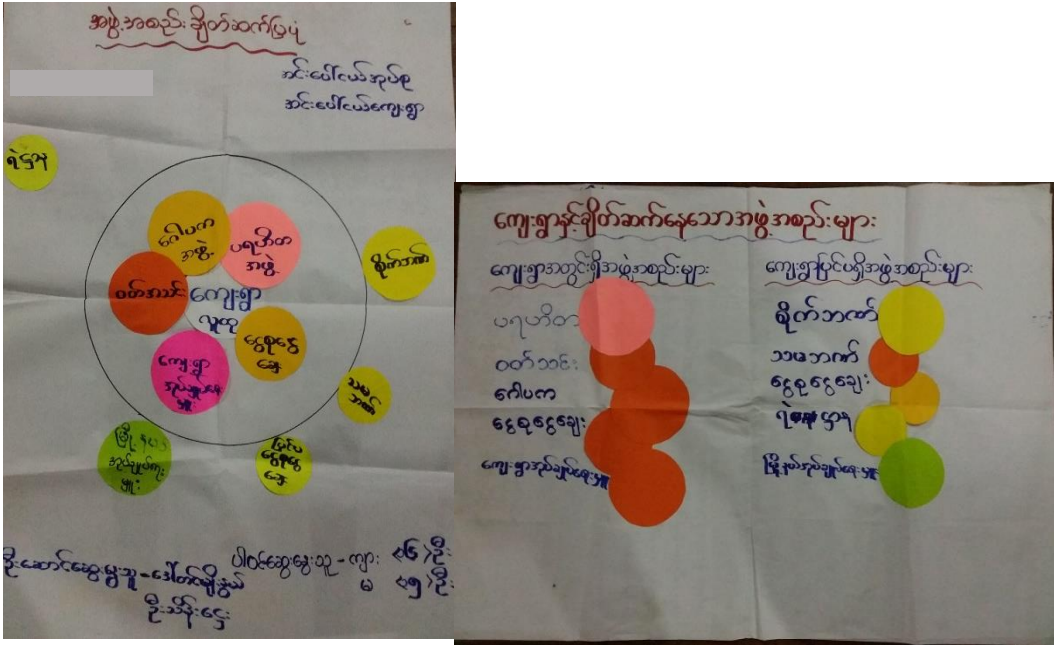 အဖွဲ့အစည်းချိတ်ဆက်ပြပုံ
အင်းပေါ်ငယ်အုပ်စု
အင်းပေါ်ငယ်ကျေးရွာ
ရဲဌာန
ဂေါပက
အဖွဲ့
ပရဟိတ
အဖွဲ့
စိုက်ဘဏ်
ဝတ်အသင်း
ကျေးရွာ
လူထု
ငွေစုငွေ
ချေး
ကျေးရွာ
အုပ်ချုပ်ရေး
မှူး
သမ
ဘဏ်
မြို့နယ်
အုပ်ချုပ်ရေး
မှူး
ပြင်ပ
ငွေစုငွေ
ချေး
ပါဝင်ဆွေးနွေးသူ - ကျား <၆> ဦး
မ <၅> ဦး
ဦးဆောင်ဆွေးနွေးသူ -
ဦးသိန်းဌေး
ကျေးရွာနှင့်ချိတ်ဆက်နေသောအဖွဲ့အစည်းများ
ကျေးရွာအတွင်းရှိအဖွဲ့အစည်းများ
ပရဟိတ
ဝတ်သင်း
ဂေါပက
ငွေစုငွေချေး
ကျေးရွာအုပ်ချုပ်ရေးမှူး
ကျေးရွာပြင်ပရှိအဖွဲ့အစည်းများ
စိုက်ဘဏ်
သမဘဏ်
ငွေစုငွေချေး
ရဲဌာန
မြို့နယ်အုပ်ချုပ်ရေးမှူး